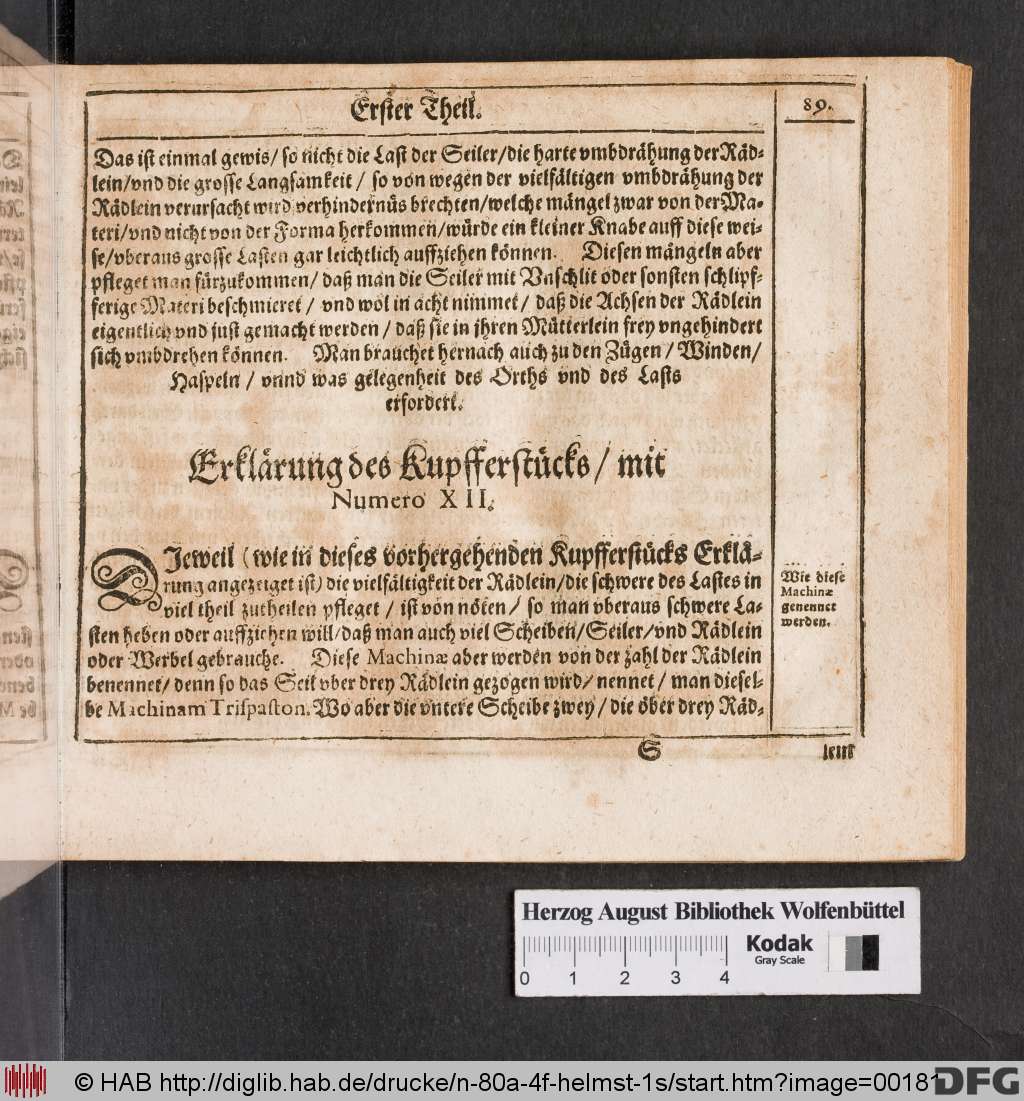 Erster Theil.
89.
Das ist einmal gewis/ so nicht die Last der Seiler/die harte vmbdrähung der Räd-
lein/vnd die grosse Langsamkeit/ so von wegen der vielfältigen vmbdrähung der
Rädlein verursacht wird verhindernüs brechten/welche mängel zwar von der Ma-
teri/vnd nicht von der Forma herkommen/würde ein kleiner Knabe auff diese wei-
se/vberaus grosse Lasten gar leichtlich auffziehen können. Diesen mängeln aber
pfleget man fürzukommen/ daß man die Seiler mit Vnschlit oder sonsten schlipf-
ferige Materi beschmieret/ vnd wol in acht nimmet/ daß die Achsen der Rädlein
eigentlich vnd just gemacht werden/ daß sie in jhren Mütterlein frey vngehindert
sich vmbdrehen können. Man brauchet hernach auch zu den Zügen/ Winden/
Haspeln/ vnnd was gelegenheit des Orths vnd des Lasts
erfordert.
Erklärung des Kupfferstücks/ mit
Numero XII.
DIeweil (wie in dieses vorhergehenden Kupfferstücks Erklä-
rung angezeiget ist) die vielfältigkeit der Rädlein/die schwere des Lastes in
viel theil zutheilen pfleget/ ist von nöten/ so man vberaus schwere La-
sten heben oder auffziehen will/daß man auch viel Scheiben/Seiler/vnd Rädlein
oder Werbel gebrauche. Diese Machinæ aber werden von der zahl der Rädlein
benennet/ denn so das Seil vber drey Rädlein gezogen wird/ nennet/ man diesel-
be Machinam Trispaston. Wo aber die vntere Scheibe zwey/ die öber drey Räd-
Wie diese
Machinæ
genennet
werden.
S
lein
Herzog August Bibliothek Wolfenbüttel
0 1 2 3 4
Kodak
Gray Scale
© HAB http://diglib.hab.de/drucke/n-80a-4f-helmst-1s/start.htm?image=00181
DFG